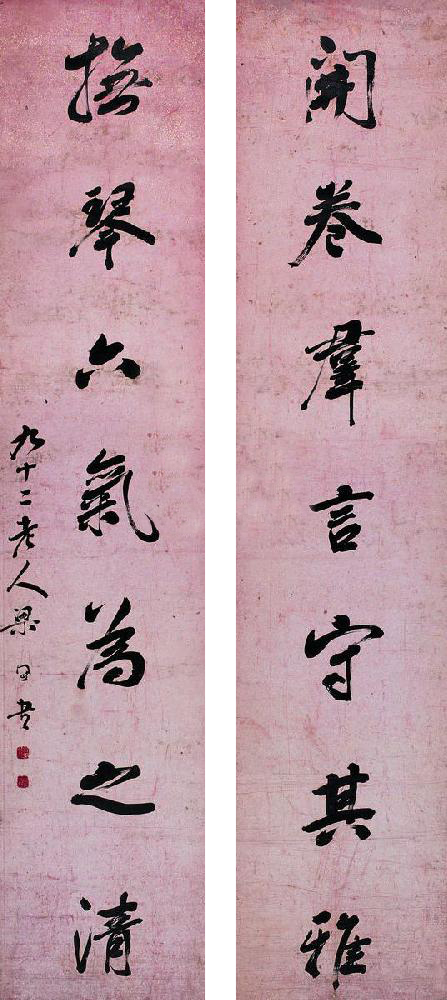 開卷羣言守其雅
撫琴六氣為之清
九十二老人梁同書